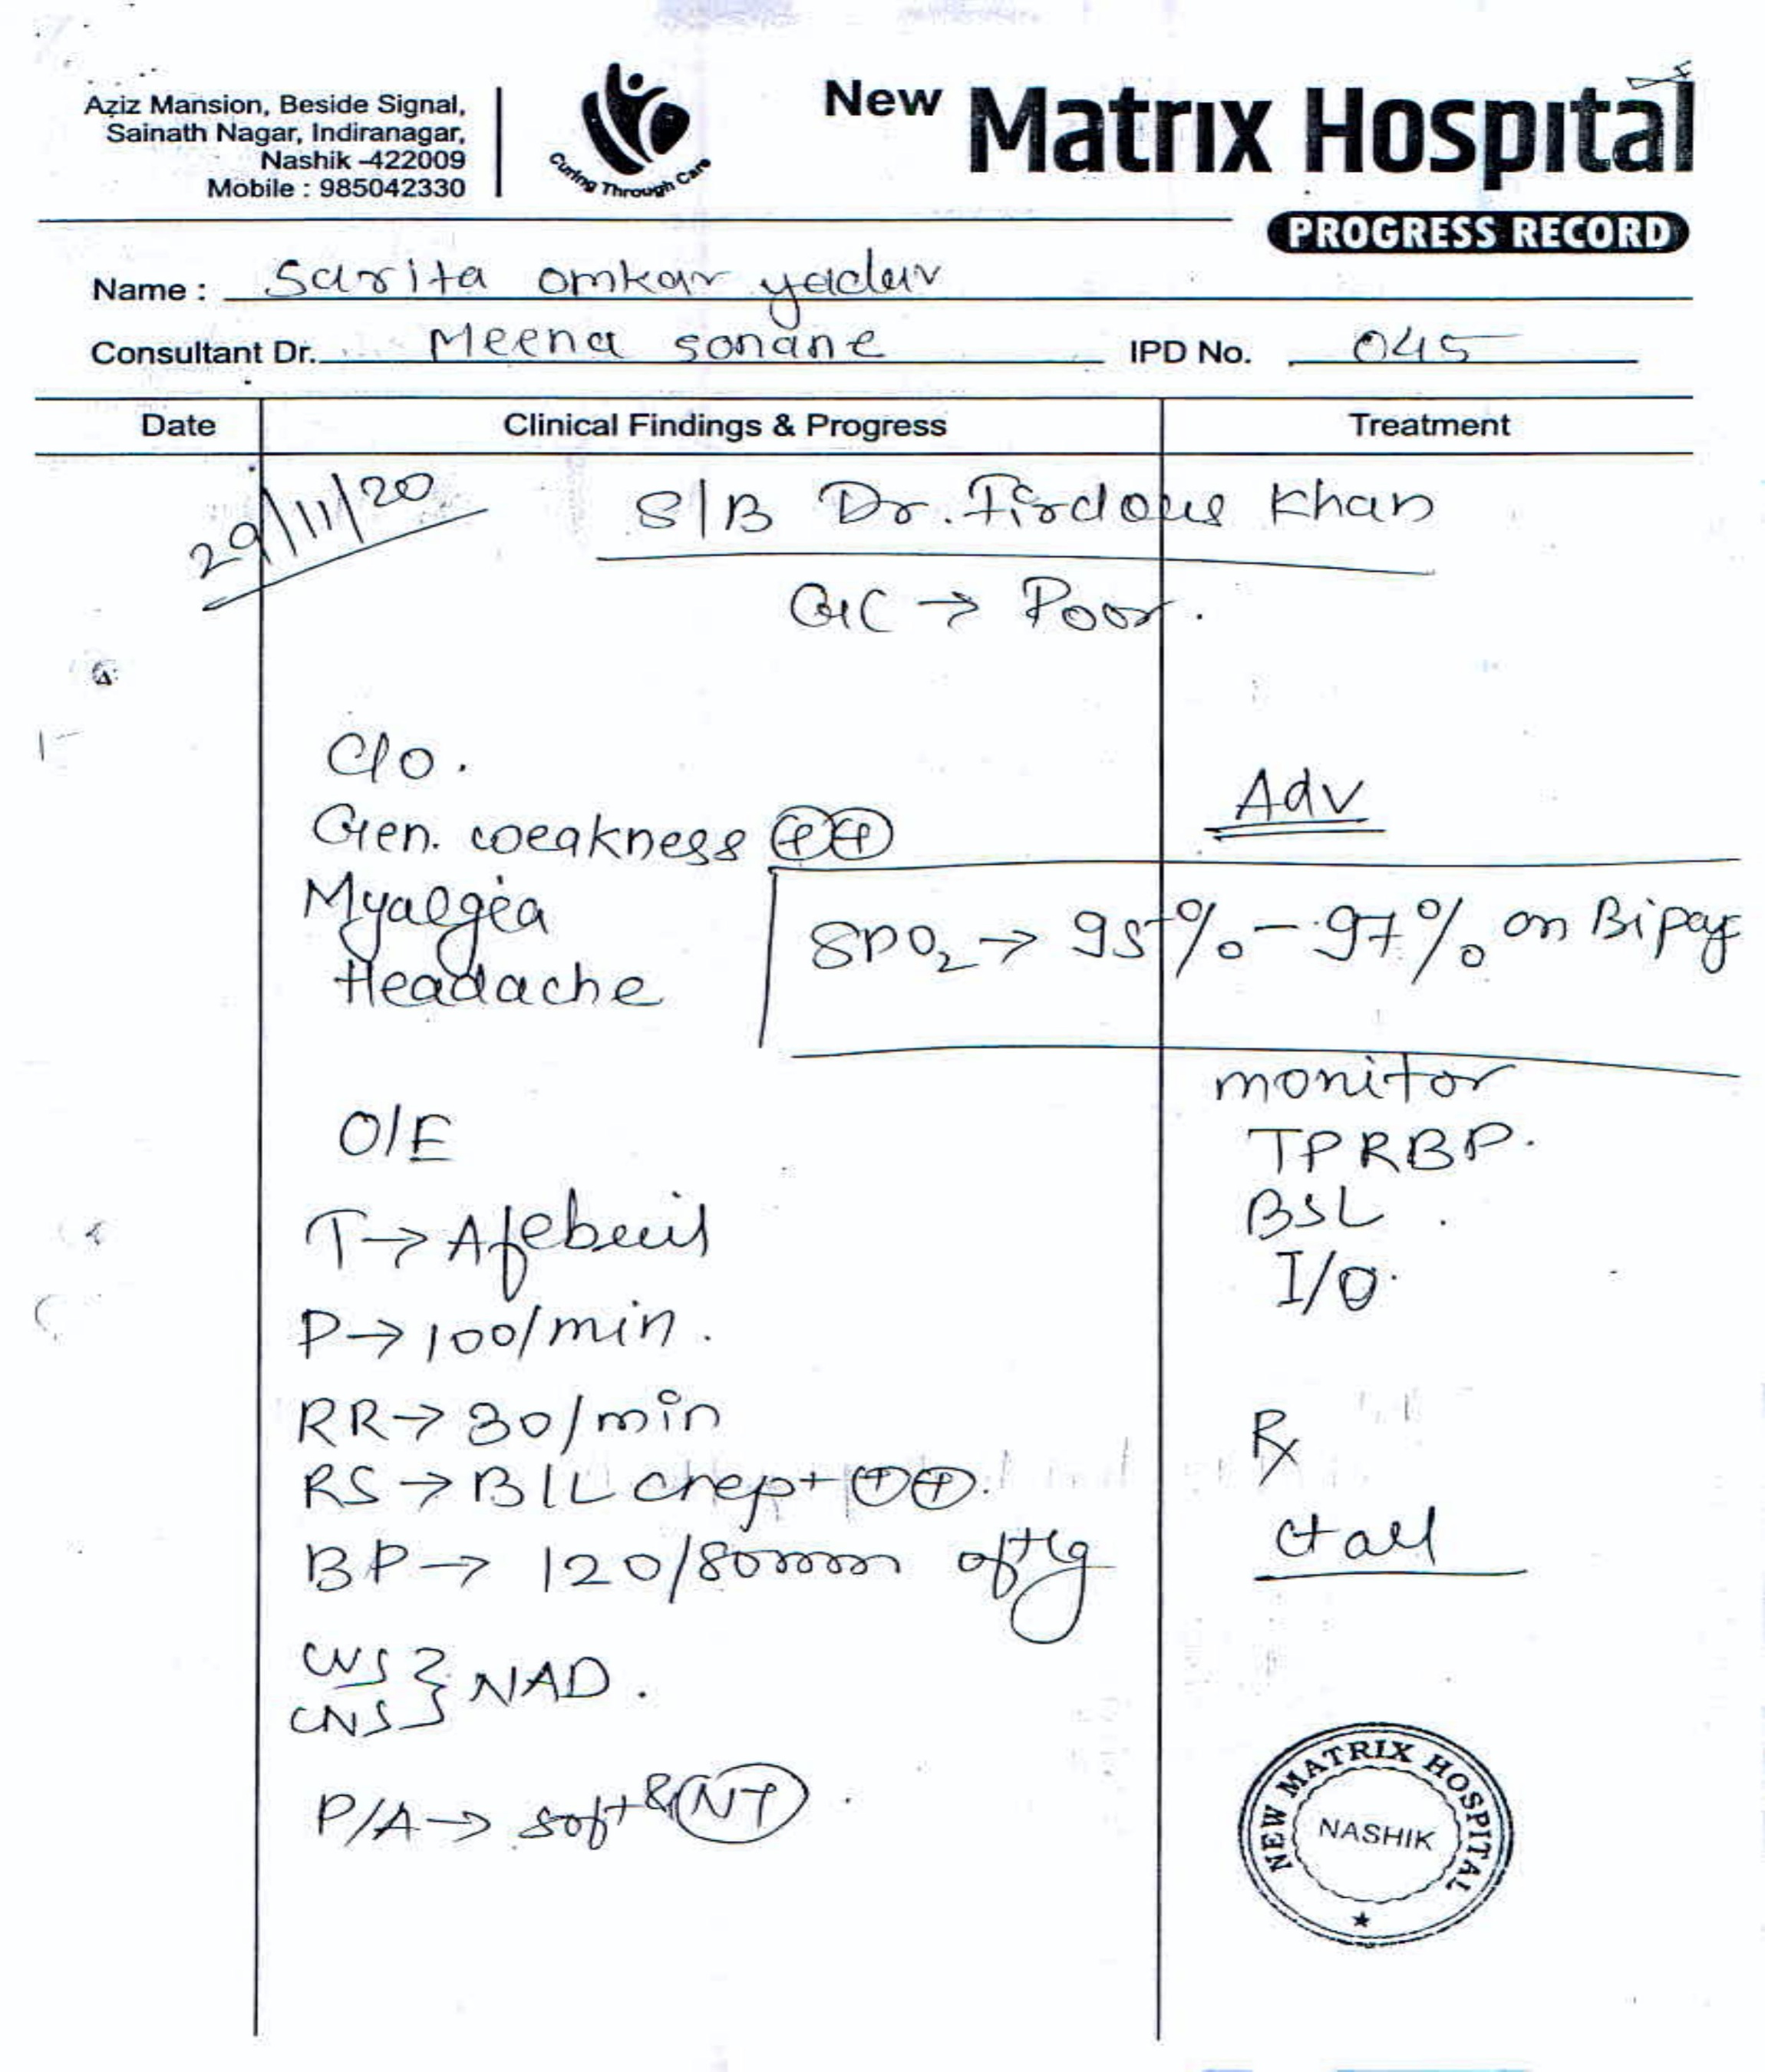 Aziz Mansion, Beside Signal,
Sainath Nagar, Indiranagar,
Nashik -422009
Mobile : 985042330
Curing Through Care
New Matrix Hospital
PROGRESS RECORD
Name : Sarita omkar yadav
Consultant Dr. Meena sonane IPD No. 045
Date Clinical Findings & Progress Treatment
29/11/20 S/B Dr. Firdous Khan
GC → Poor.
C/O.
Adv
Gen. weakness ⊕⊕
Myalgia
SPO2 → 95% - 97% on Bipap
Headache
monitor
O/E
TPRBP.
T → Afebril
BSL.
I/O.
P → 100/min.
RR → 30/min
Rx
RS → B/L crept ⊕⊕.
Ct all
BP → 120/80mm of Hg
CVS } NAD.
CNS
P/A → soft & NT.
NEW MATRIX HOSPITAL
NASHIK